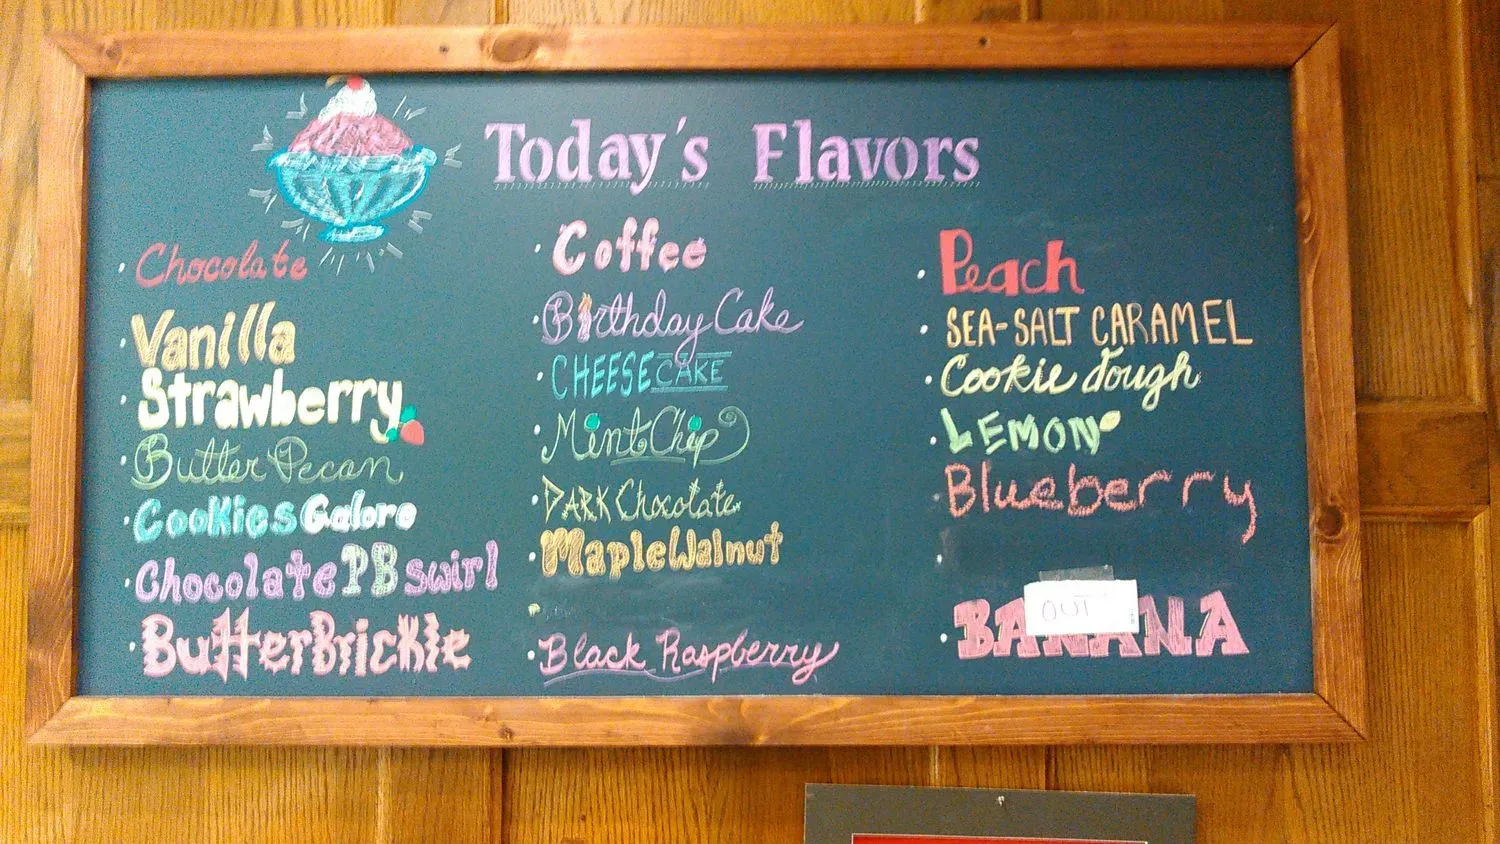 Today's Flavors
Chocolate
Vanilla
Strawberry
Butter Pecan
Cookies Galore
Chocolate PB swirl
ButterBrickle
Coffee
Birthday Cake
CHEESECAKE
Mint Chip
DARK Chocolate
Maple Walnut
Black Raspberry
Peach
SEA-SALT CARAMEL
Cookie dough
LEMON
Blueberry
OUT
BANANA